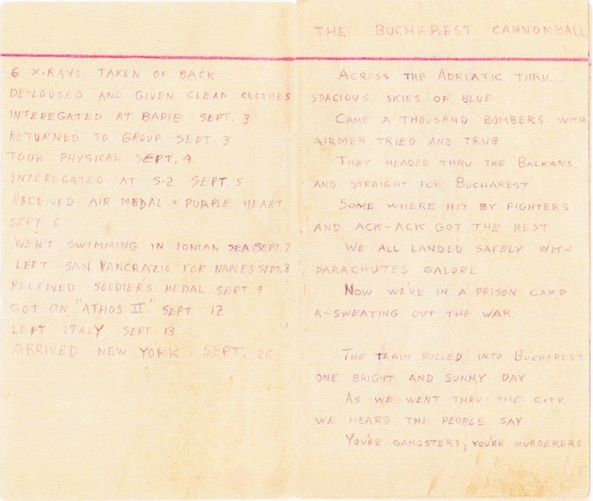 6 X-RAYS TAKEN OF BACK
DE-LOUSED AND GIVEN CLEAN CLOTHES
INTEREGATED AT BARIE SEPT. 3
RETURNED TO GROUP SEPT. 3
TOOK PHYSICAL SEPT. 4
INTEREGATED AT S-2 SEPT. 5
RECEIVED AIR MEDAL + PURPLE HEART
SEPT 5
WENT SWIMMING IN IONIAN SEA SEPT. 7
LEFT SAN PANCRAZIO FOR NAPLES SEPT. 8
RECEIVED SOLDIER'S MEDAL SEPT 9
GOT ON "ATHOS II" SEPT. 12
LEFT ITALY SEPT. 13
ARRIVED NEW YORK SEPT. 26
THE BUCHAREST CANNONBALL
ACROSS THE ADRIATIC THRU
SPACIOUS SKIES OF BLUE
CAME A THOUSAND BOMBERS WITH
AIRMEN TRIED AND TRUE
THEY HEADED THRU THE BALKANS
AND STRAIGHT FOR BUCHAREST
SOME WHERE HIT BY FIGHTERS
AND ACK-ACK GOT THE REST
WE ALL LANDED SAFELY WITH
PARACHUTES GALORE
NOW WE'RE IN A PRISON CAMP
A-SWEATING OUT THE WAR
THE TRAIN PULLED INTO BUCHAREST
ONE BRIGHT AND SUNNY DAY
AS WE WENT THRU THE CITY
WE HEARD THE PEOPLE SAY
YOU'RE GANGSTERS, YOU'RE MURDERERS